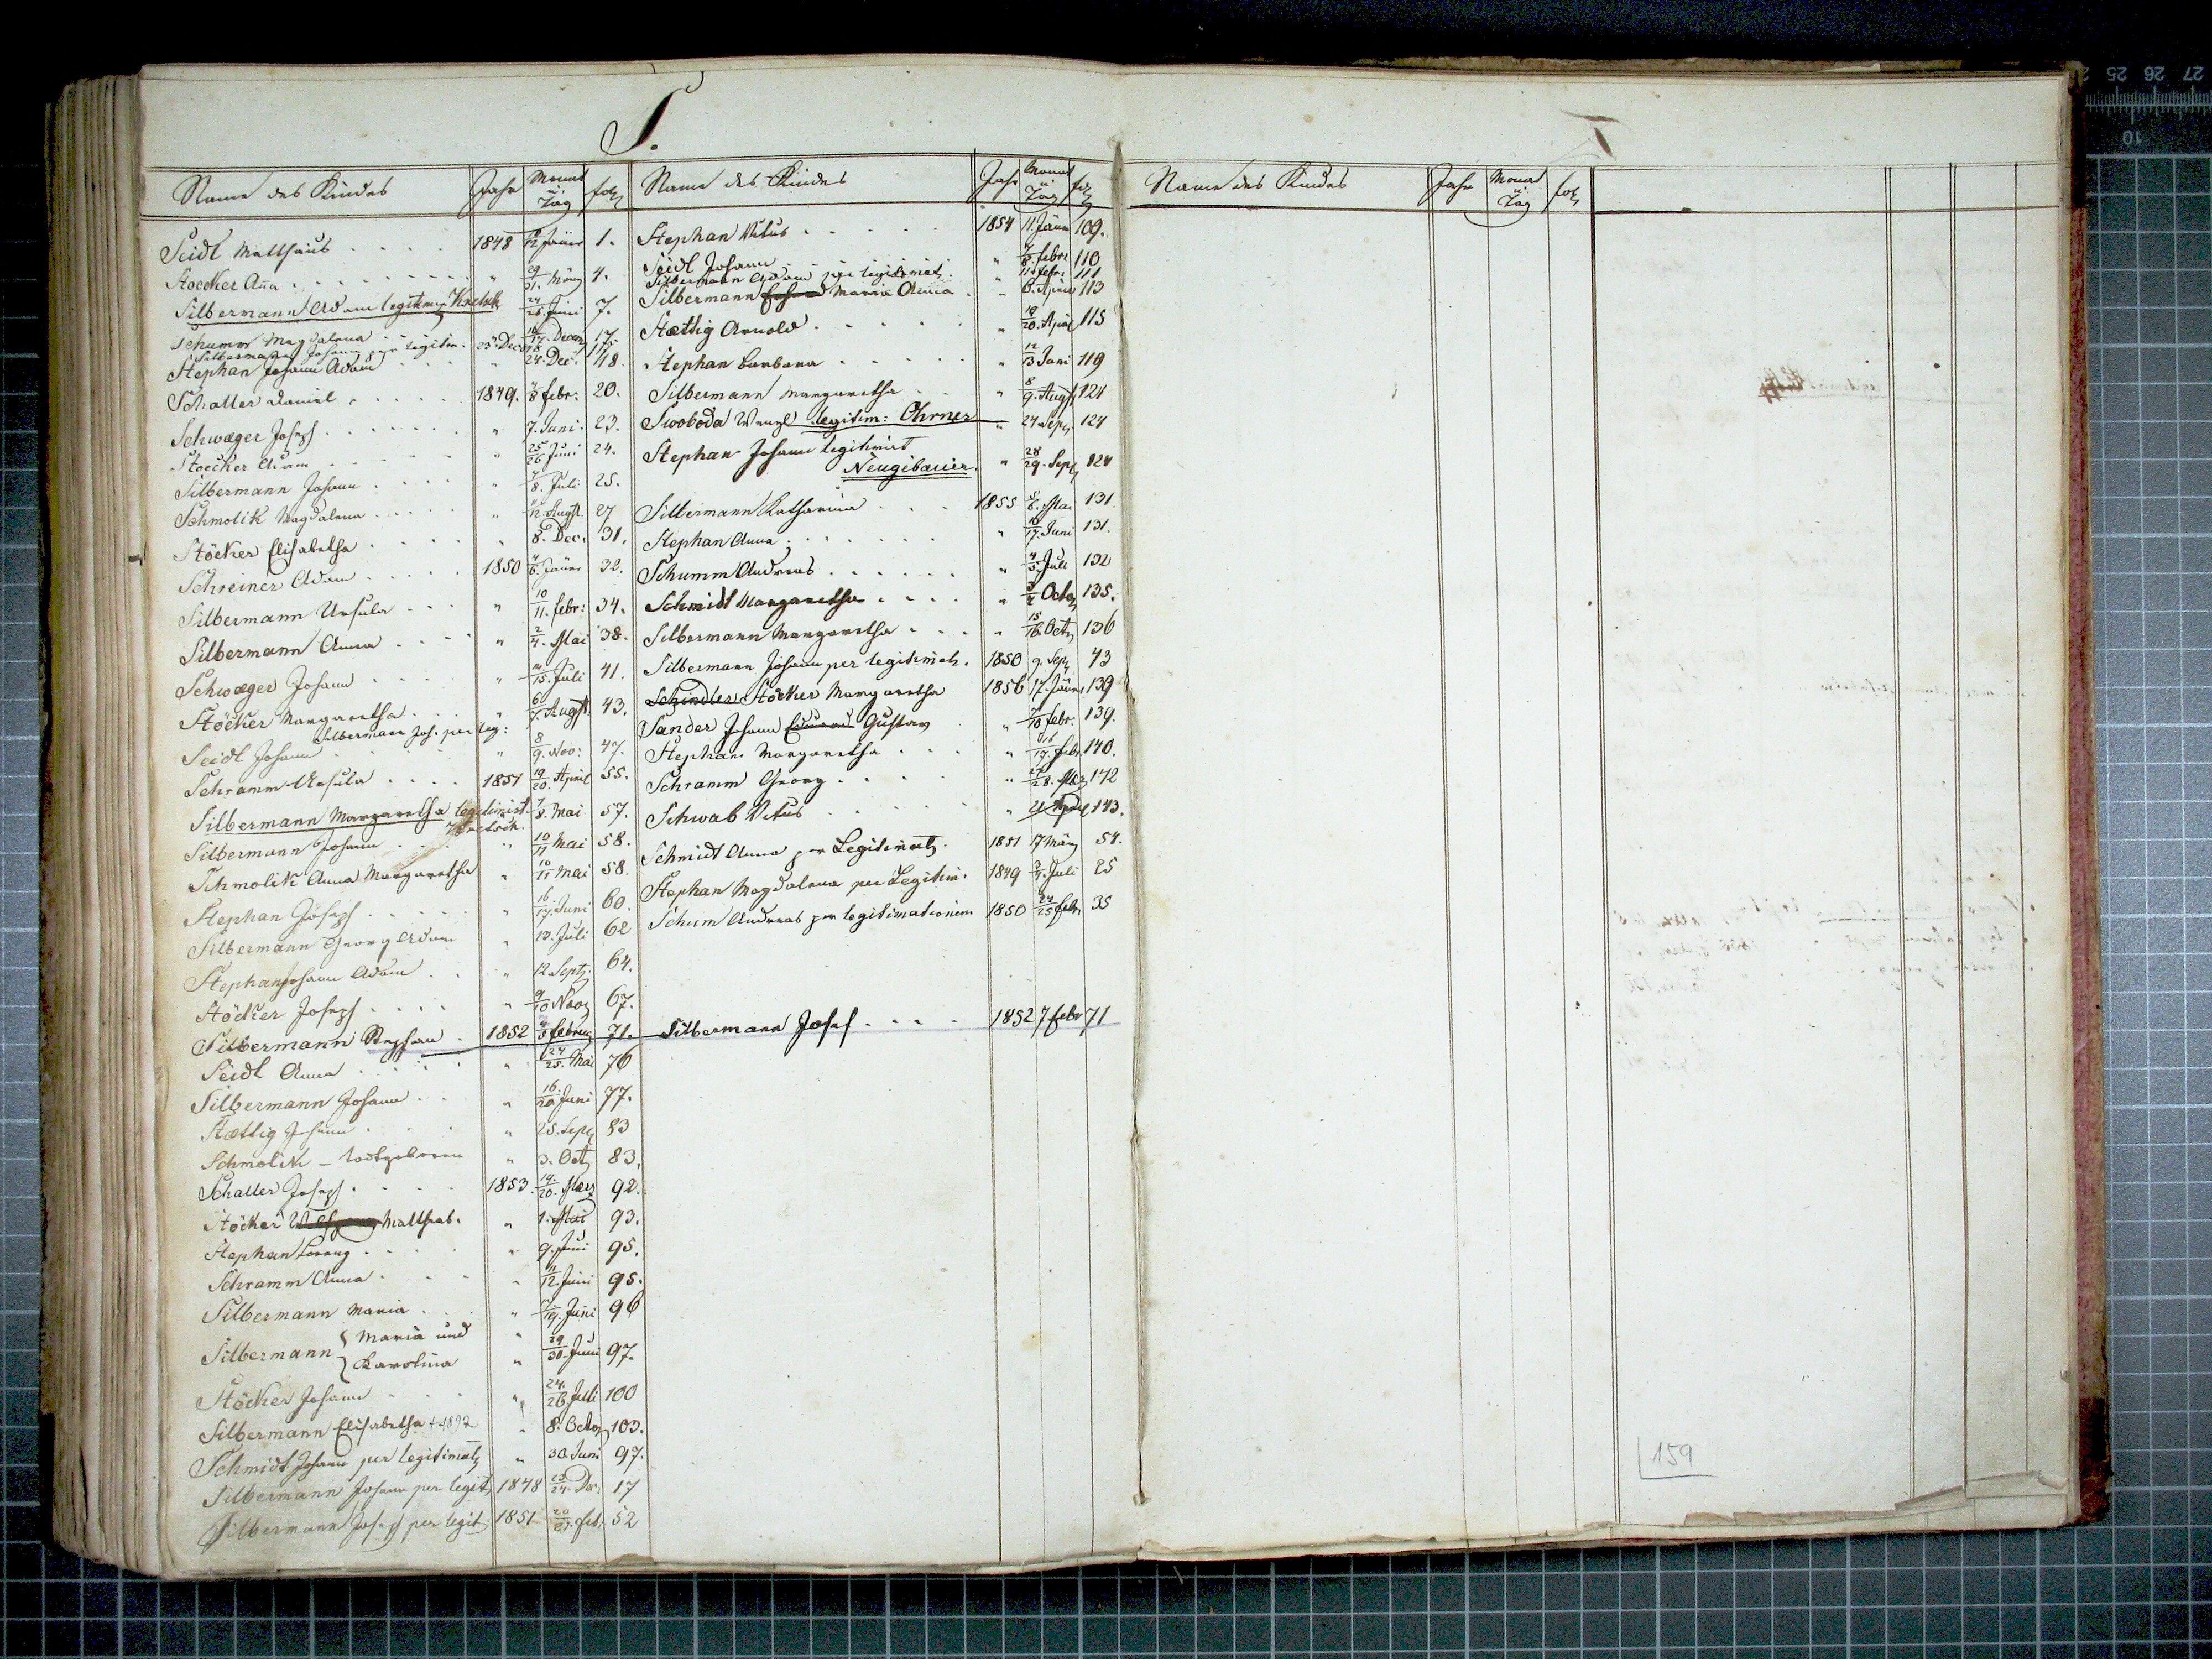 S.
Name des Kindes Jahr Monat u. Tag fol
Seidl Matthäus 1848 10/12 Jäner 1.
Stoecker Aña " 29/31. März 4.
Silbermann Adam legitim. " 24/25. Juni 7.
Schumm Magdalena 16/17. Decem 17.
Silbermann Johann per legitim. 23. Dec 17
Stephan Johann Adam " 24. Dec. 18.
Schaller Daniel 1849. 7/8 febr. 20.
Schwæger Joseph " 7. Juni. 23.
Stoecker Adam " 25/26 Juni 24.
Silbermann Johann " 7/8. Juli 25.
Schmolik Magdalena " 11/12. Augst. 27
Stöcker Elisabetha " 8. Dec. 31.
Schreiner Adam 1850 4/6. Jäner 32.
Silbermann Ursula " 10/11. febr: 34.
Silbermann Anna " 2/4. Mai 38.
Schwæger Johann " 14/15. Juli 41.
Stöcker Margaretha " 6/7. Augst. 43.
Silbermann Joh. per leg:
Seidl Johann " 8/9. Nov: 47.
Schramm Ursula 1851 19/20. April 55.
Silbermann Margaretha legitimirt 7/8. Mai 57.
Silbermann Johann " 10/11 Mai 58.
Schmolik Anna Margaretha " 10/11 Mai 58.
Stephan Joseph " 16/17. Juni 60.
Silbermann Georg Adam " 13. Juli 62
Stephan Johann Adam " 12 Septz. 64.
Stöcker Joseph " 9/10 Nov 67.
Silbermann Stephan 1852 februar 71.
Seidl Anna " 24/25. Mai 76
Silbermann Johann " 16./20 Juni 77.
Stættig Johann " 25. Sept 83
Schmolik – todtgeboren " 3. Oct 83.
Schaller Joseph 1853. 19./20. Merz 92.
Stöcker Wolfgang Matthæus. " 1. Mai 93.
Stephan Lorenz " 9. Juni 95.
Schramm Anna " 11/12. Juni 95.
Silbermann Maria " 17/19. Juni 96
Silbermann { Maria und " 29/30. Juni 97.
Karolina "
Stöcker Johann " 24./26 Juli 100
Silbermann Elisabetha +1892 " 8. Octo 103.
Schmidt Johann per legitimat " 30 Juni 97.
Silbermann Johann per legit 1848 23/24. Dec: 17
Silbermann Joseph per legit 1851 20/21. feb. 52
Name des Kindes Jahr Monat u. Tag fol
Stephan Vitus 1854 11. Jäner 109.
Seidl Johann " 7/8. febr: 110
Silbermann Adam per legitimat. " 11. febr: 111
Silbermann Maria Anna " 6. April 113
Stættig Arnold " 19/20. April 115
Stephan Barbara " 12/13 Juni 119
Silbermann Margaretha " 8/9. Augst 121
Swoboda Wenzl legitim: Ohrner " 24 Sept 124
Stephan Johann legitimirt
Neugebauer. " 28/29. Sept 124
Silbermann Katharina 1855 5/6. Mai 131
Stephan Anna " 16/17. Juni 131.
Schumm Andreas " 4/5. Juli 132
Schmidt Margaretha " 3/4 Octo 135.
Silbermann Margaretha " 15/16. Oct 136
Silbermann Johann per legitimat. 1850 9. Sept 43
Schindler Stöcker Margaretha 1856 17. Jäner 139
Sander Johann Eduard Gustav " 7/10 febr. 139.
Stephan Margaretha " 16/17. febr. 140.
Schramm Georg " 27/28. Mrz 142
Schwab Vitus " April 143.
Schmidt Anna per Legitimat. 1851 17 März 54.
Stephan Magdalena per Legitim. 1849 3/4. Juli 25
Schum Andreas per legitimationem 1850 24/25 febr. 35
Silbermann Josef 1852 7 febr 71
T
Name des Kindes Jahr Monat u. Tag fol
159